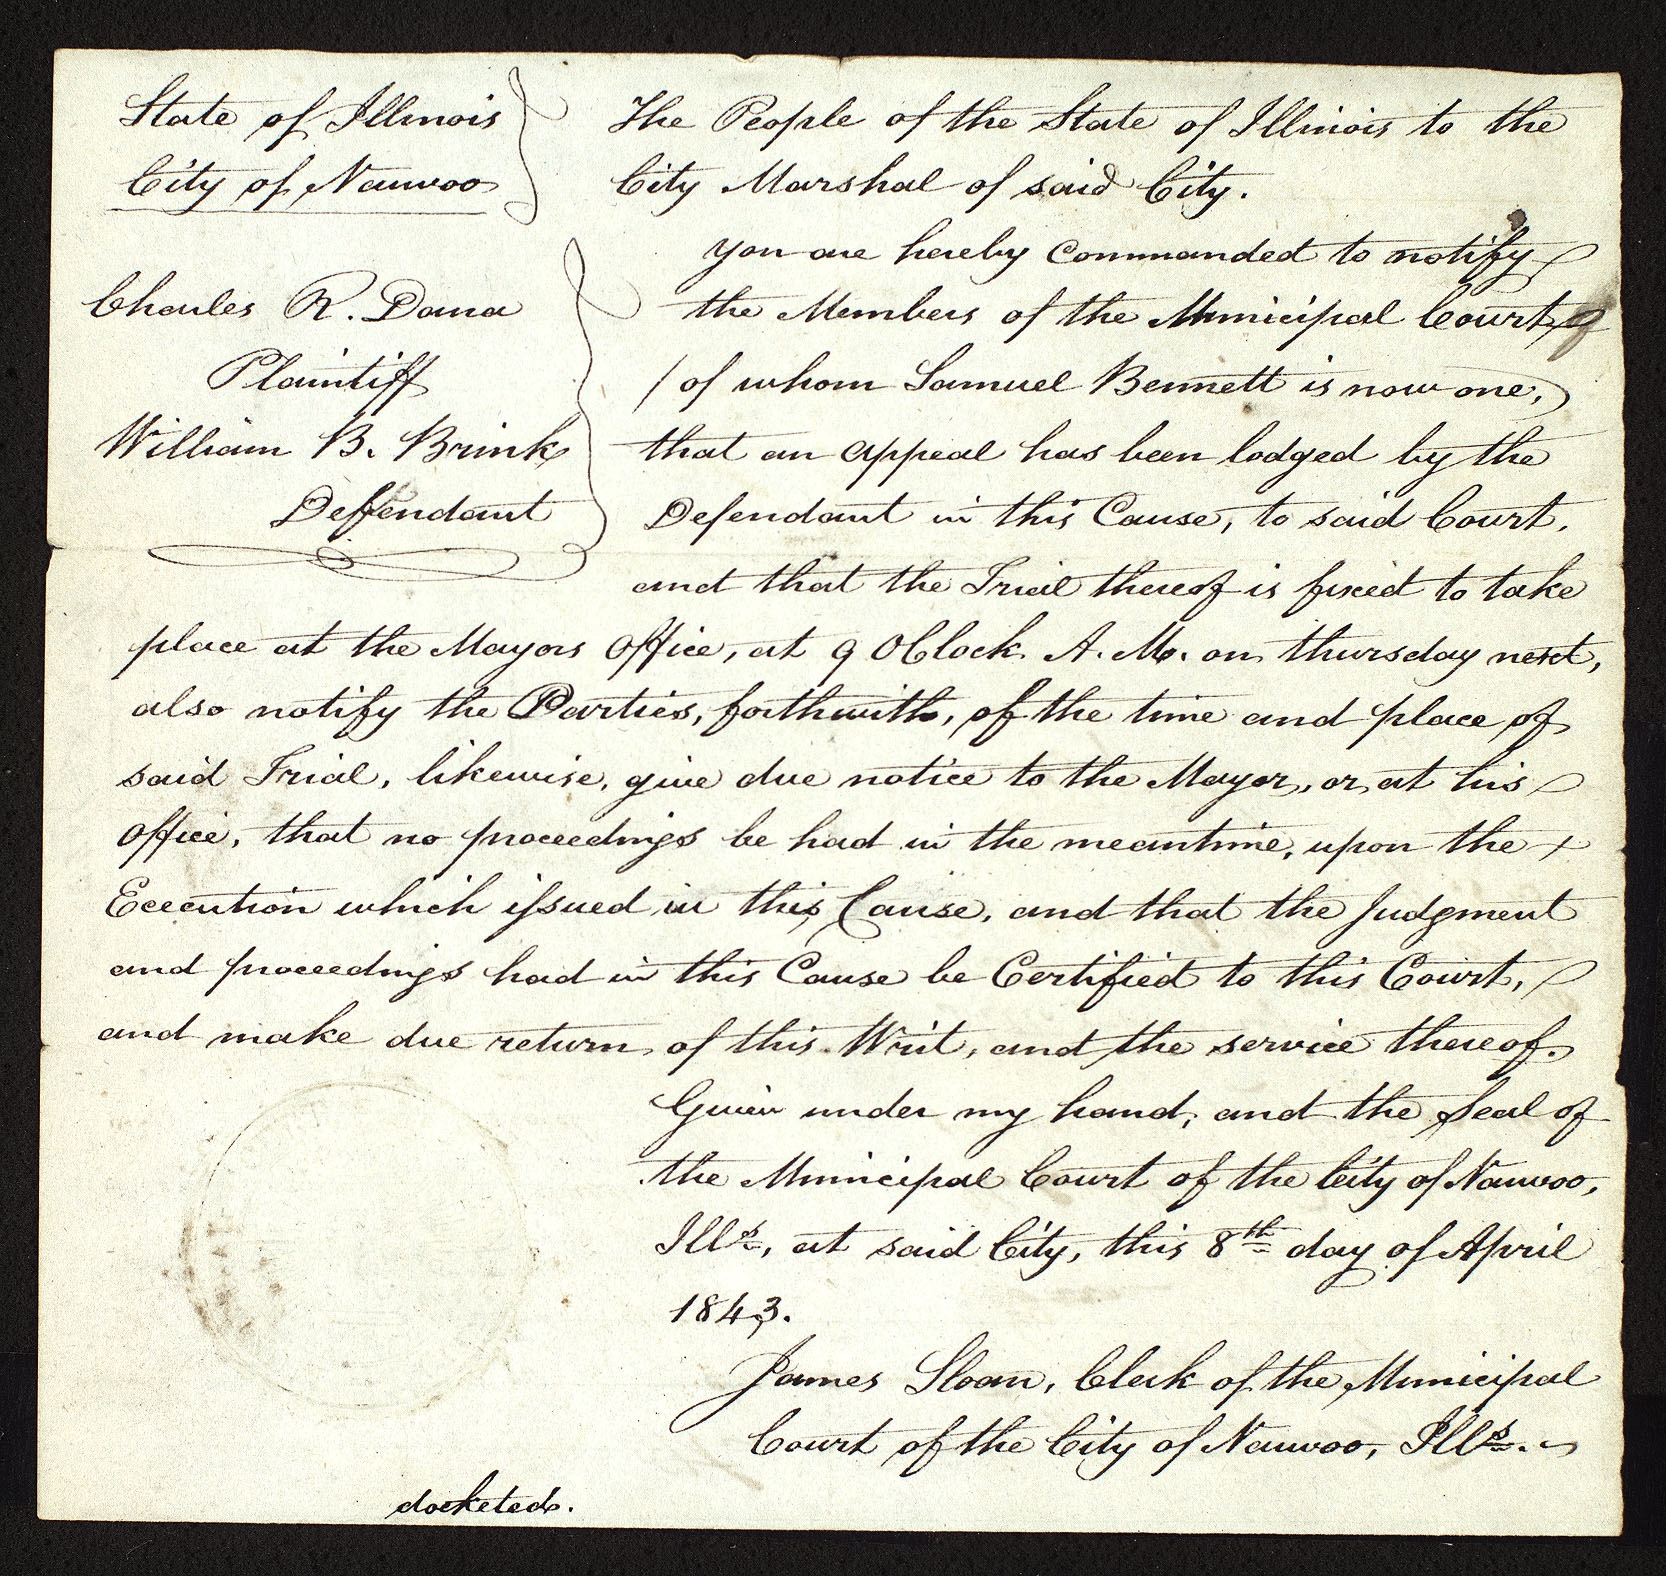 State of Illinois
City of Nauvoo
Charles R. Dana
Plaintiff
William B. Brink
Deffendant
The People of the State of Illinois to the
City Marshal of said City.
you are hereby Commanded to notify
the Members of the Municipal Court
/ of whom Samuel Bennett is now one,)
that an appeal has been lodged by the
Defendant in this Cause, to said Court.
and that the Trial thereof is fixed to take
place at the Mayors Office, at 9 O Clock A. M. on thursday next,
also notify the Parties, forthwith, of the time and place of
said Trial, likewise, give due notice to the Mayor, or at his
Office, that no proceedings be had in the meantime, upon the
Execution which issued in this Cause, and that the Judgment
and proceedings had in this Cause be Certified to this Court,
and make due return of this Writ, and the service thereof.
Given under my hand, and the Seal of
the Municipal Court of the City of Nauvoo,
Ills, at said City, this 8th day of April
1843.
James Sloan, Clerk of the Municipal
Court of the City of Nauvoo, Ills.
docketed.